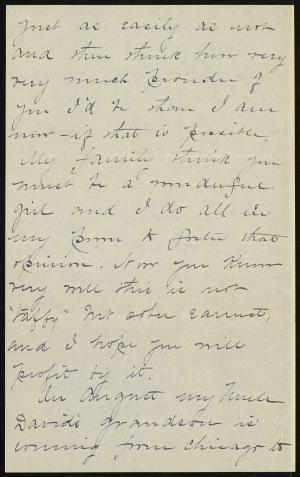 just as easily as not
and then think how very
very much prouder of
you I'd be than I am
now - if that is possible.
My family think you
must be a wonderful
girl and I do all in
my power to foster that
opinion. Now you know
very well this is not
"taffy" but sober earnest,
and I hope you will
profit by it.
In August my Uncle
David's grandson is
coming from Chicago to